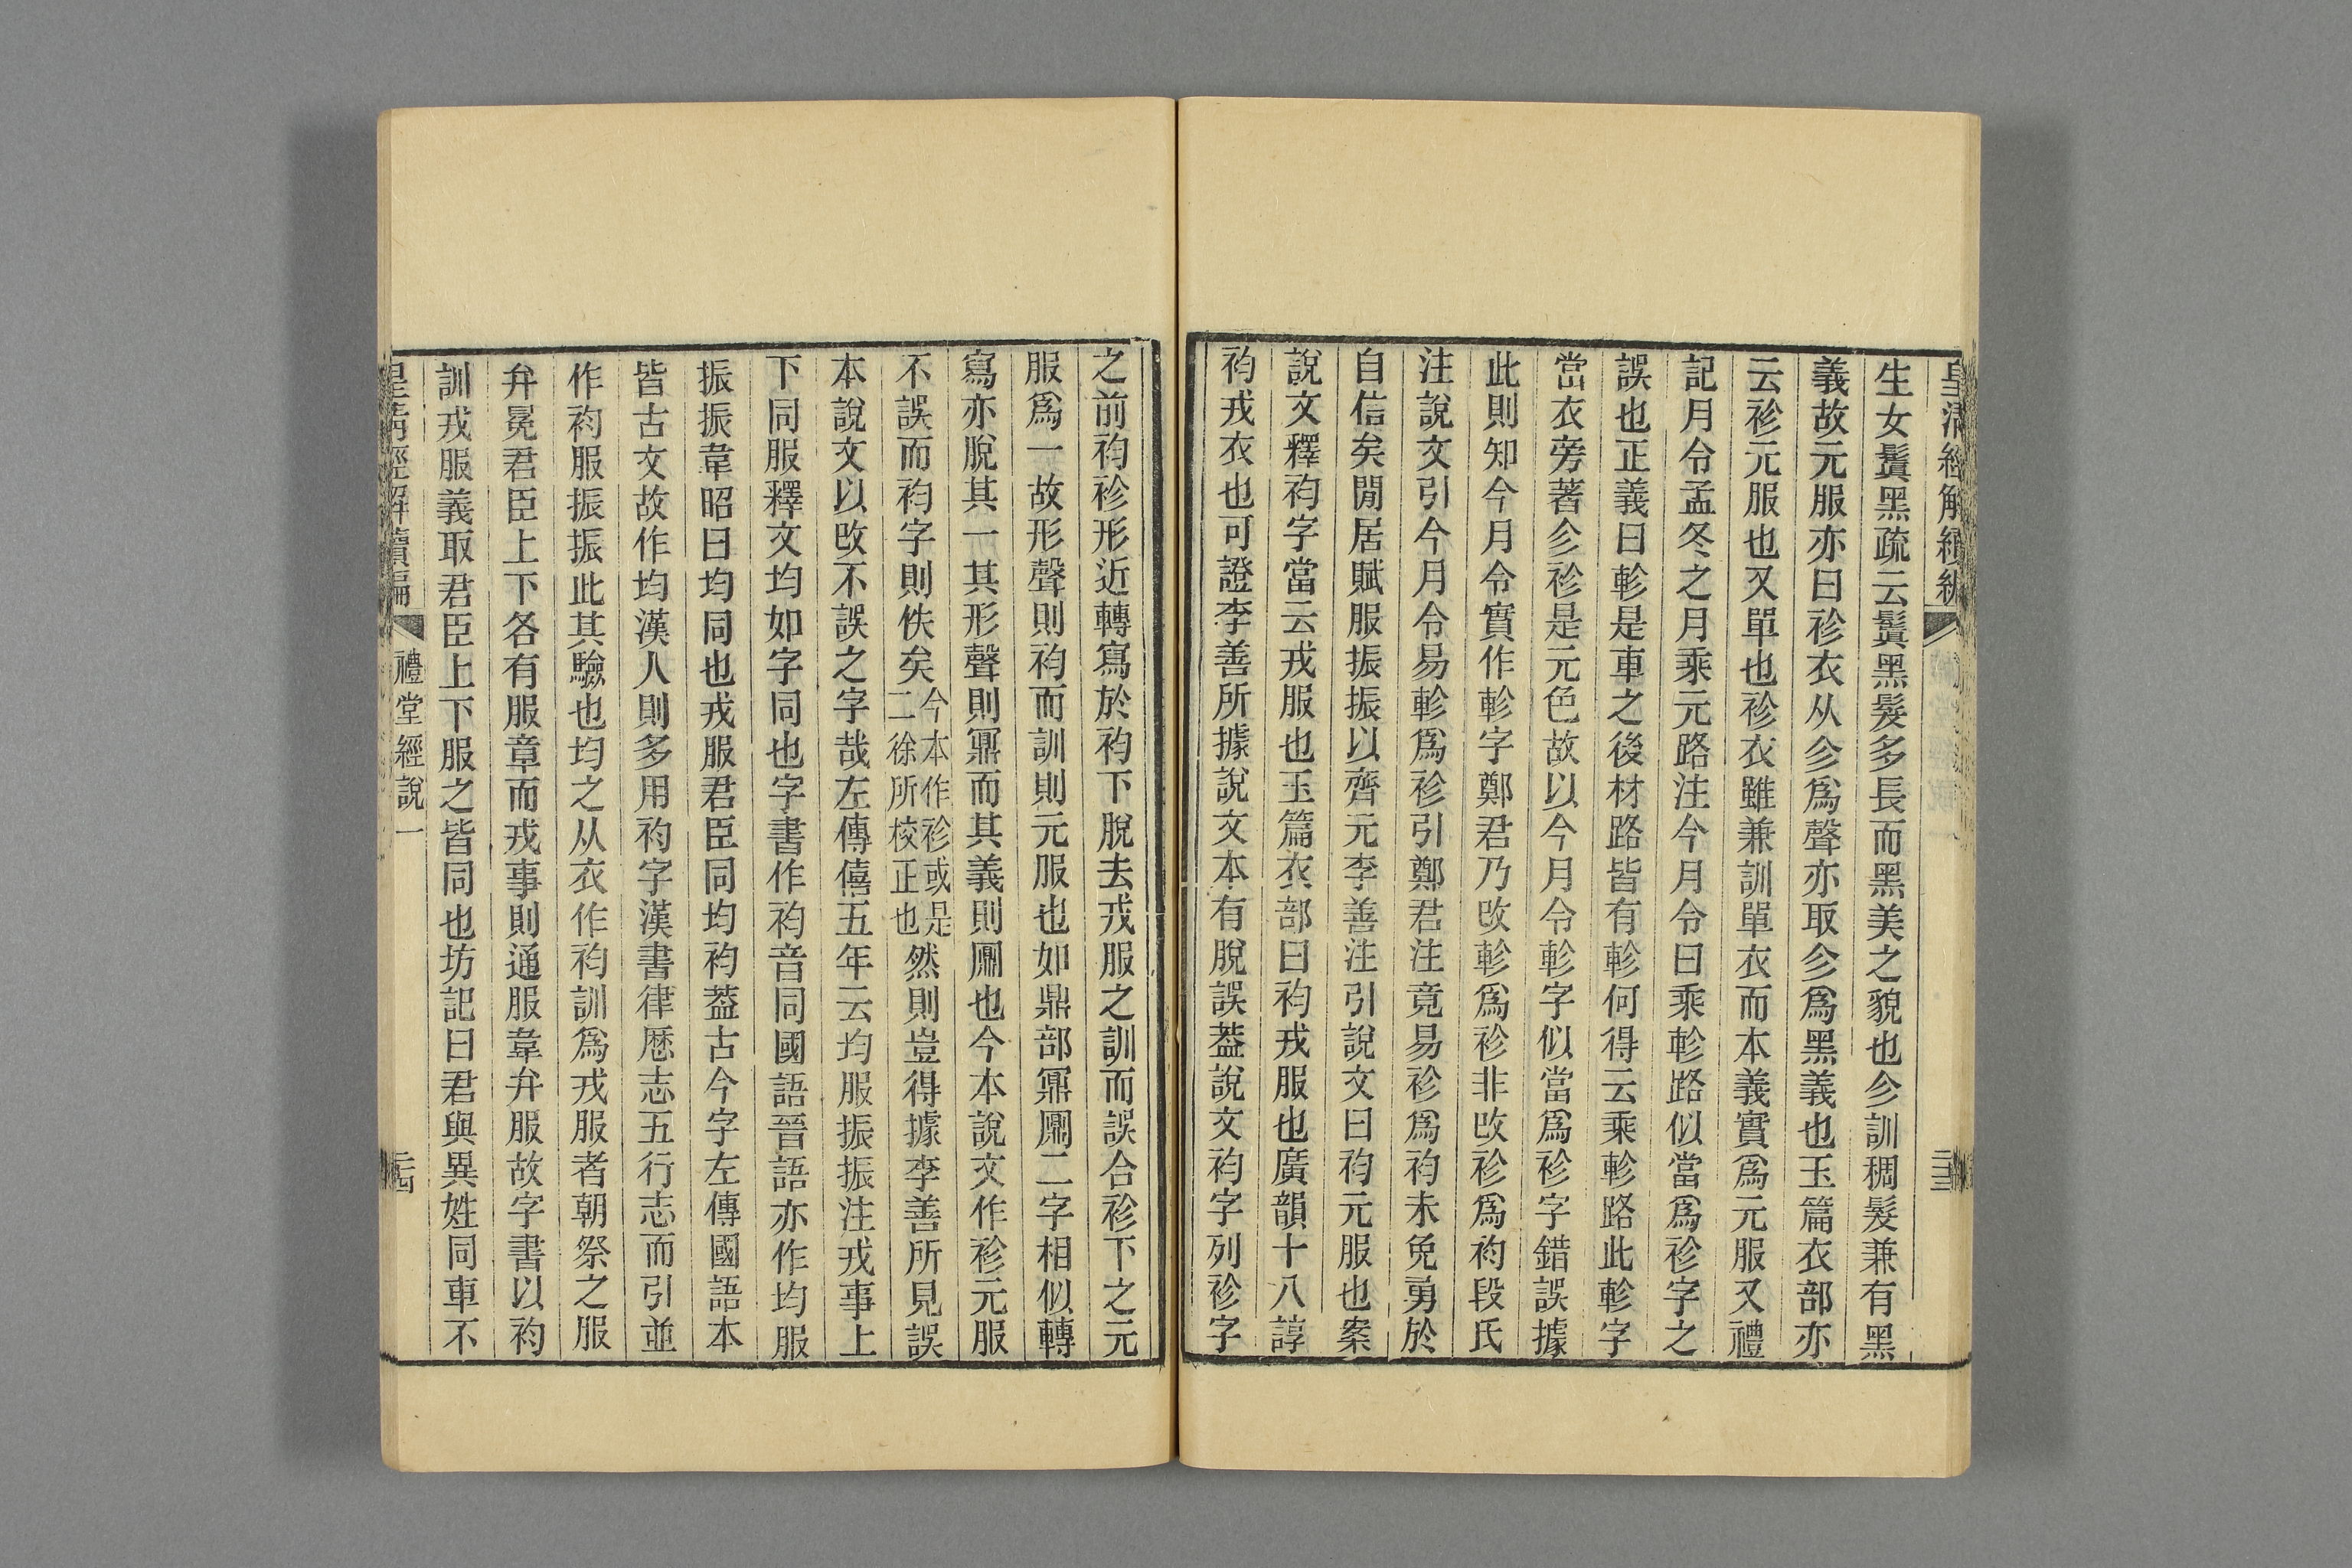 皇清經解續編
生女鬒黑疏云鬒黑髮多長而黑美之貌也㐱訓稠髮兼有黑
義故元服亦曰袗衣从㐱爲聲亦取㐱爲黑義也玉篇衣部亦
云袗元服也又單也袗衣雖兼訓單衣而本義實爲元服又禮
記月令孟冬之月乘元路注今月令曰乘軫路似當爲袗字之
誤也正義曰軫是車之後材路皆有軫何得云乘軫路此軫字
當衣旁著㐱袗是元色故以今月令軫字似當爲袗字錯誤據
此則知今月令實作軫字鄭君乃改軫爲袗非改袗爲袀段氏
注說文引今月令易軫爲袗引鄭君注竟易袗爲袀未免勇於
自信矣閒居賦服振振以齊元李善注引說文曰袀元服也案
說文釋袀字當云戎服也玉篇衣部曰袀戎服也廣韻十八諄
袀戎衣也可證李善所據說文本有脫誤葢說文袀字列袗字
之前袀袗形近轉寫於袀下脫去戎服之訓而誤合袗下之元
服爲一故形聲則袀而訓則元服也如鼎部鼏鼏二字相似轉
寫亦脫其一其形聲則鼏而其義則鼏也今本說文作袗元服
不誤而袀字則佚矣今本作袗或是二徐所校正也然則豈得據李善所見誤
本說文以改不誤之字哉左傳僖五年云均服振振注戎事上
下同服釋文均如字同也字書作袀音同國語晉語亦作均服
振振韋昭曰均同也戎服君臣同均袀葢古今字左傳國語本
皆古文故作均漢人則多用袀字漢書律厯志五行志而引並
作袀服振振此其驗也均之从衣作袀訓爲戎服者朝祭之服
弁冕君臣上下各有服章而戎事則通服韋弁服故字書以袀
訓戎服義取君臣上下服之皆同也坊記曰君與異姓同車不
皇清經解續編 禮堂經說一 二十四